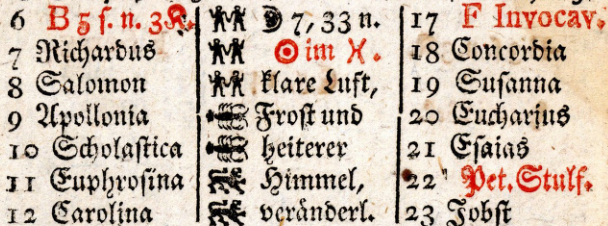 6 B 5 f. n. 3 K. ☽ 7, 33 n. 17 F Invocav.
7 Richardus ☉ im ♓. 18 Concordia
8 Salomon klare Luft, 19 Susanna
9 Apollonia Frost und 20 Eucharius
10 Scholastica heiterer 21 Esaias
11 Euphrosina Himmel, 22 Pet. Stulf.
12 Carolina veränderl. 23 Jobst